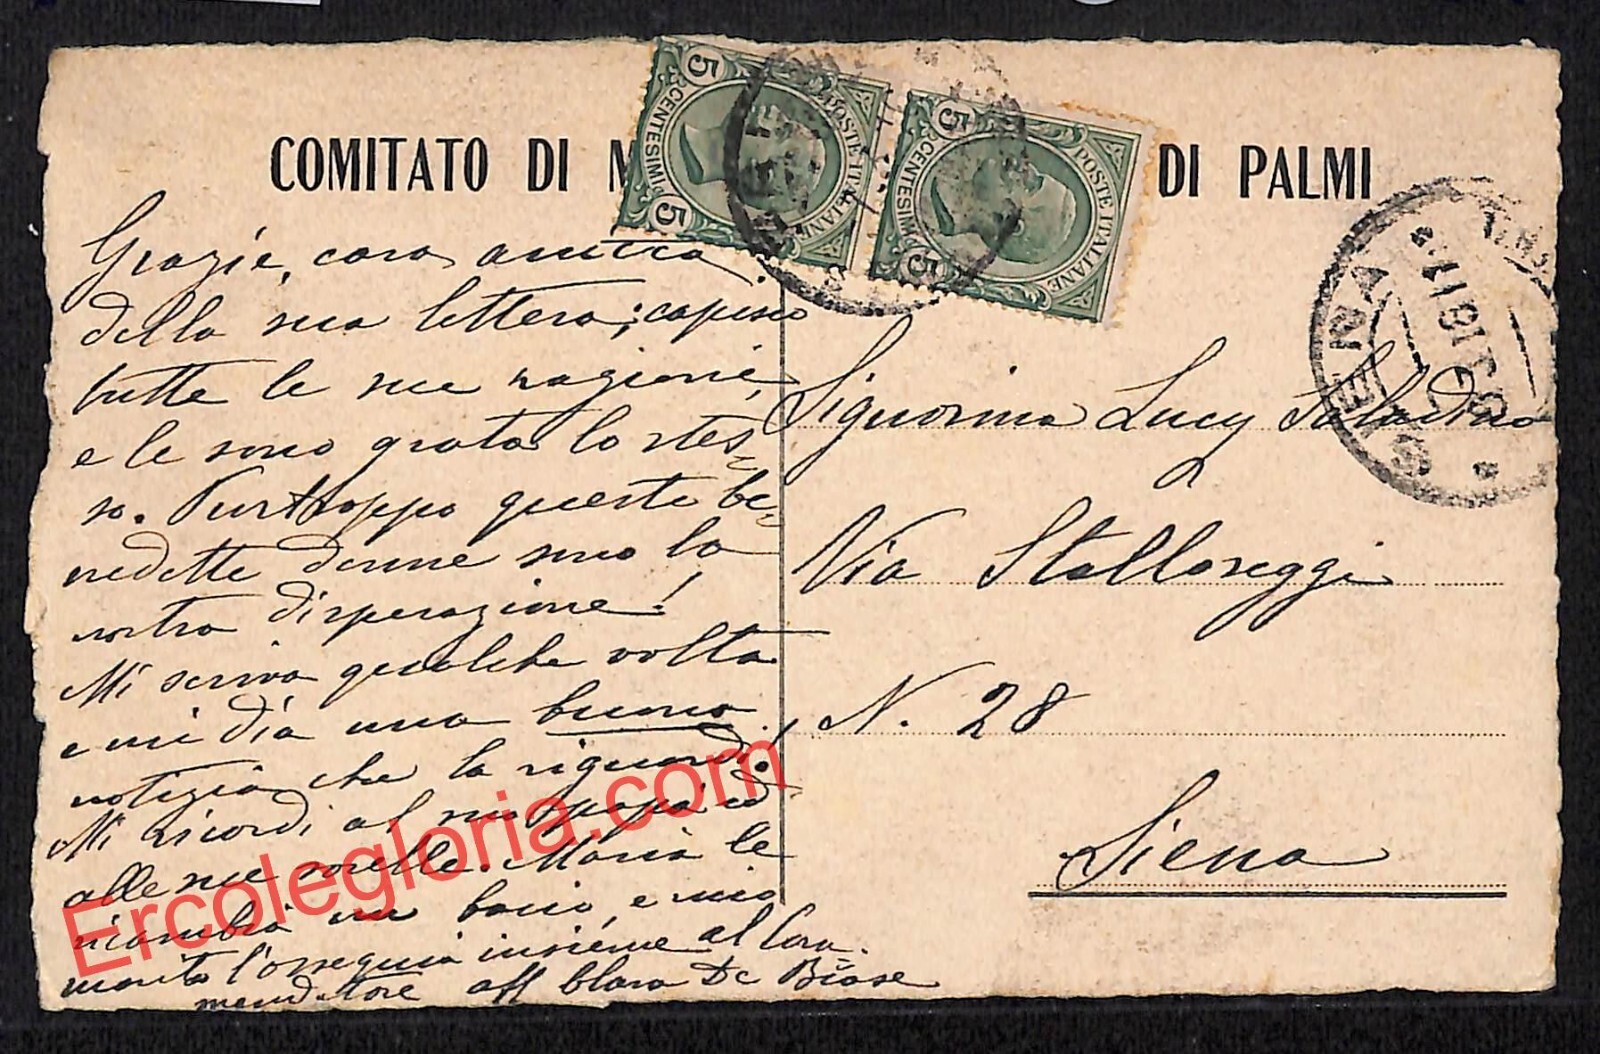 COMITATO DI M DI PALMI
5 CENTESIMI 5 POSTE ITALIANE
5 CENTESIMI 5 POSTE ITALIANE
SIENA
Grazie, cara amica
della sua lettera; capisco
tutte le sue ragioni,
e le sono grata lo stes-
so. Purtroppo queste be-
nedette donne sono la
nostra disperazione!
Mi scriva qualche volta
e mi dia una buona
notizia che la riguardi!
Mi ricordi al suo papà ed
alle sue sorelle. Maria le
ricambia un bacio, e mio
marito l'ossequia insieme al Com-
mendatore aff Clara De Biase
Signorina Lucy Saladino
Via Stalloreggi
N. 28
Siena
Ercolegloria.com